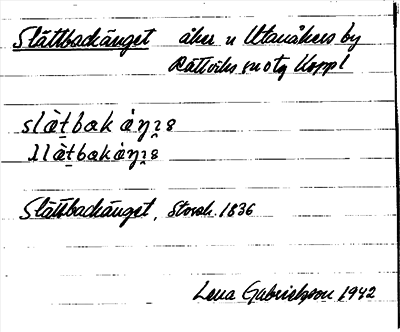 Slättbackänget åker u Utanåkers by
Rättviks sn o tg Koppl
slæ̀t̠bakæ̀ŋɿ̯s
ɹlæ̀t̠bakæ̀ŋɿ̯s
Slättbackänget, Storsk. 1836
Lena Gabrielsson 1942